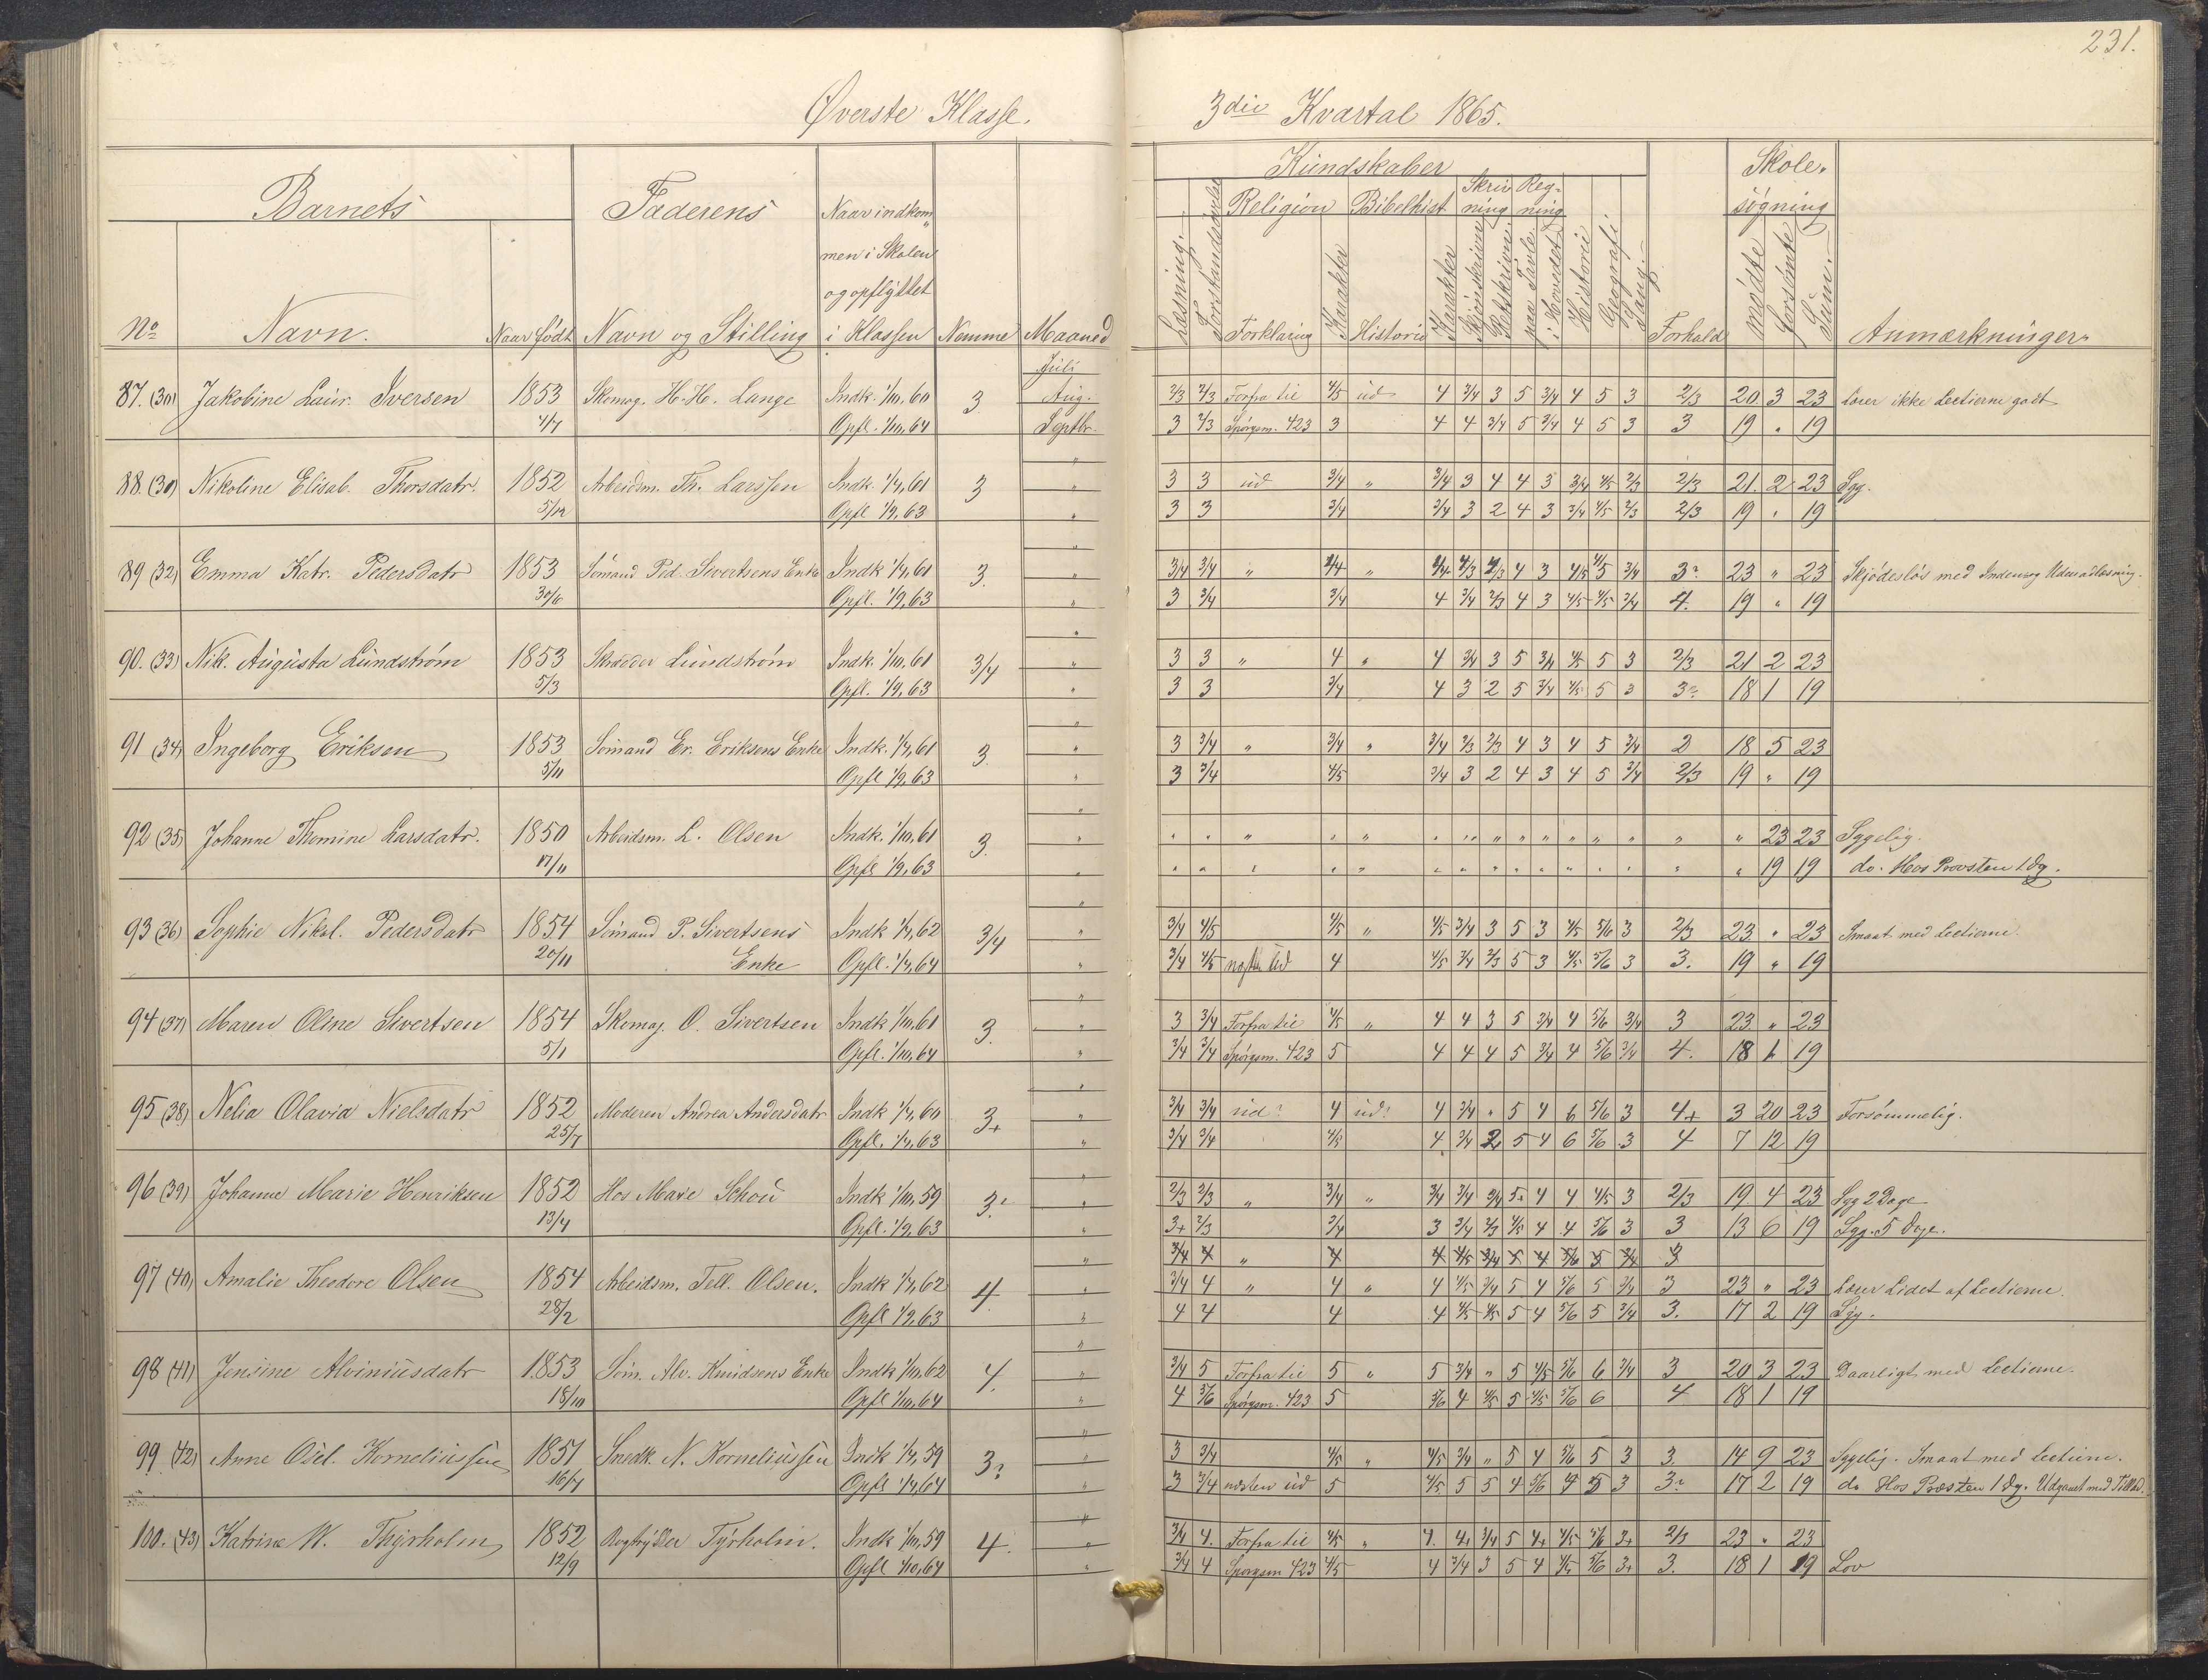 231.
Øverste Klasse. 3die Kvartal 1865.
Barnets Faderens Naar indkom„ Kundskaber Skole„
men i Skolen Religion Bibelhist Skriv ning Reg„ ning søgning
og opflyttet
No Navn. Naar født Navn og Stilling i Klassen Nemme Maaned Læsning. Forstandsøvelse Forklaring Karakter Historie Karakter Skjönskrivn Retskrivn. paa Tavle. i Hovedet Historie Geografi Sang. Forhold mødte forsömte Sum. Anmærkninger
Juli
87. (30) Jakobine Laur. Iversen 1853 Skomag. H. H. Lange Indk. 1/10, 60 3 Aug. 2/3 2/3 Forfra til 4/5 ud 4 3/4 3 5 3/4 4 5 3 2/3 20 3 23 Lærer ikke Lectierne godt
4/4 Opfl. 1/10, 64 Septbr. 3 2/3 Spörgsm. 423 3 4 4 3/4 5 3/4 4 5 3 3 19 „ 19
88. (31) Nikoline Elisab. Thorsdatr. 1852 Arbeidsm. Th. Larssen Indk. 1/4, 61 3 „ 3 3 ud 3/4 „ 3/4 3 4 4 3 3/4 4/5 2/3 2/3 21. 2 23 Syg.
5/12 Opfl 1/9, 63 „ 3 3 3/4 3/4 3 2 4 3 3/4 4/5 2/3 2/3 19 „ 19
89 (32) Emma Katr. Pedersdatr 1853 Sömand Ped. Sivertsens Enke Indk 1/4, 61 3. „ 3/4 3/4 „ 3/4 „ 4 3 4/5 4/5 3/4 3? 23 „ 23 Skjödeslös med Inden„og Udenadlæsning.
30/6 Opfl. 1/9, 63 „ 3 3/4 3/4 4 3/4 2/3 4 3 4/5 4/5 3/4 4. 19 „ 19
90. (33) Nik. Augusta Lundström 1853 Skrædder Lundström Indk. 1/10, 61 3/4 „ 3 3 „ 4 „ 4 3/4 3 5 3/4 4/5 5 3 2/3 21 2 23
5/3 Opfl. 1/9, 63 „ 3 3 3/4 4 3 2 5 3/4 4/5 5 3 3? 18 1 19
91 (34) Ingeborg Eriksen 1853 Sömand Er. Eriksens Enke Indk. 1/4, 61 3. „ 3 3/4 „ 3/4 „ 3/4 2/3 2/3 4 3 4 5 3/4 2 18 5 23
5/11 Opfl 1/9, 63 „ 3 3/4 4/5 3/4 3 2 4 3 4 5 3/4 2/3 19 „ 19
92 (35) Johanne Thomine Larsdatr. 1850 Arbeidsm. L. Olsen Indk. 1/10, 61 3. „ „ „ „ „ „ „ „ „ „ „ „ „ „ „ „ 23 23 Sygelig.
17/11 Opfl 1/9, 63 „ „ „ „ „ „ „ „ „ „ „ „ „ „ „ „ 19 19 do. Hos Provsten 1 Dg.
93 (36) Sophie Nikol. Pedersdatr 1854 Sömand P. Sivertsens Indk 1/4, 62 3/4 „ 3/4 4/5 4/5 „ 4/5 3/4 3 5 3 4/5 5/6 3 2/3 23 „ 23 Smaat med Lectierne.
20/11 Enke Opfl. 1/4, 64 „ 3/4 4/5 ud 4 4/5 3/4 2/3 5 3 4/5 5/6 3 3. 19 „ 19
94 (37) Maren Oline Sivertsen 1854 Skomag. O. Sivertsen Indk 1/10, 61 3. „ 3 3/4 Forfra til 4/5 „ 4 4 3 5 3/4 4 5/6 3/4 3 23 „ 23
5/1 Opfl. 1/10, 64 „ 3/4 3/4 Spörgsm. 423 5 4 4 4 5 3/4 4 5/6 3/4 4. 18 1 19
95 (38) Nelia Olavia Nielsdatr 1852 Moderen Andrea Andersdatr Indk 1/4, 60 3+ „ 3/4 3/4 ud? 4 ud? 4 3/4 „ 5 4 6 5/6 3 4+ 3 20 23 Forsömmelig.
25/7 Opfl. 1/4, 63 „ 3/4 3/4 4/5 4 3/4 2 5 4 6 5/6 3 4 7 12 19
96 (39) Johanne Marie Henriksen 1852 Hos Maie Schou Indk 1/10, 59 3? „ 2/3 2/3 „ 3/4 „ 3/4 3/4 3/4 5. 4 4 4/5 3 2/3 19 4 23 Syg 2 Dage
13/4 Opfl. 1/9, 63 „ 3+ 2/3 3/4 3 3/4 2/3 4/5 4 4 5/6 3 3 13 6 19 Syg. 5 Dage.
„ 3/4 4 „ 4 4 4/5 3/4 5 4 5/6 5 3/4 3
97 (40) Amalie Theodore Olsen 1854 Arbeidsm. Tell. Olsen. Indk 1/4, 62 4. „ 3/4 4 „ 4 „ 4 4/5 3/4 5 4 5/6 5 3/4 3 23 „ 23 Lærer Lidet af Lectierne.
28/2 Opfl 1/9, 63 „ 4 4 4 4 4/5 4/5 5 4 5/6 5 3/4 3. 17 2 19 Syg.
98 (41) Jensine Alviniusdatr 1853 Söm. Alv. Knudsens Enke Indk 1/10, 62 4. „ 3/4 5 Forfra til 5 „ 5 3/4 „ 5 4/5 5/6 6 3/4 3 20 3 23 Daarligt med Lectierne.
18/10 Opfl 1/10, 64 „ 4 5/6 Spörgsm. 423 5 5/6 4 4/5 5 4/5 5/6 6 4 18 1 19
99 (42) Anne Osel. Korneliussen 1851 Snedk. N. Korneliussen Indk 1/4, 59 3? „ 3 3/4 4/5 „ 4/5 3/4 „ 5 4 5/6 5 3 3. 14 9 23 Sygelig. Smaat med Lectierne.
16/4 Opfl 1/4, 64 „ 3 3/4 næsten ud 5 4/5 5 5 4 5/6 4 5 3 3? 17 2 19 do Hos Provsten 1 Dg. Udgaaet med Tillad.
100. (43) Katrine W. Thyrholm 1852 Tyrholm. Indk 1/10, 59 4. „ 3/4 4. Forfra til 4/5 „ 4. 4+ 3/4 5 4+ 4/5 5/6 3+ 2/3 23 „ 23
12/9 Opfl 1/10, 64 „ 3/4 4 Spörgsm 423 4/5 4 3/4 3 5 4 4/5 5/6 3+ 3. 18 1 19 Lov